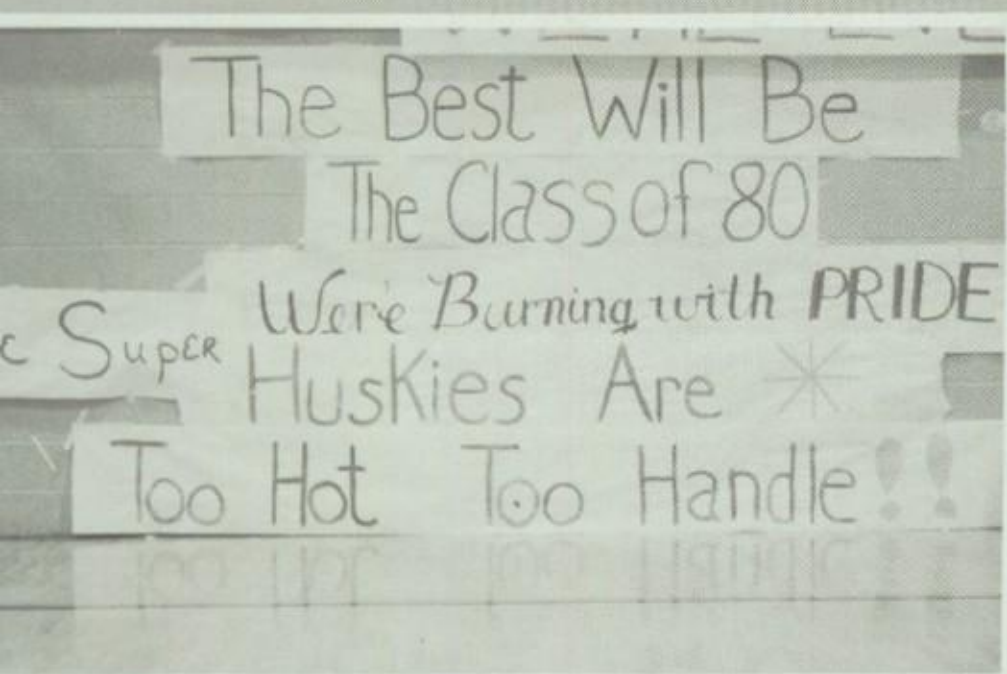 The Best Will Be
The Class of 80
We're Burning with PRIDE
Super
Huskies Are
Too Hot Too Handle!!